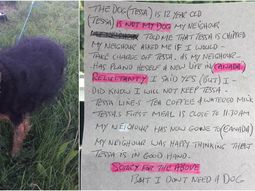 THE DOG (TESSA) IS 12 YEAR OLD
(TESSA) IS NOT MY DOG MY NEIGHOUR
TOLD ME THAT TESSA IS CHIPPED
MY NEIGHOUR ASKED ME IF I WOULD -
TAKE CHARGE OFF TESSA. AS MY NEIGHOUR -
HAS PLAND HESELF A NEW LIFE IN (CANADA)
RELUCTANTY I SAID YES (BUT) I -
DID KNOW I WILL NOT KEEP TESSA -
TESSA LIKES TEA COFFEE & WATERED MILK
TESSA'S FIRST MEAL IS CLOSE TO 11-30AM
MY NEIGHOUR HAS NOW GONE TO (CANADA)
MY NEIGHOUR WAS HAPPY THINKING THAT
TESSA IS IN GOOD HAND.
SORRY FOR THE ABOVE
BUT I DON'T NEED A DOG